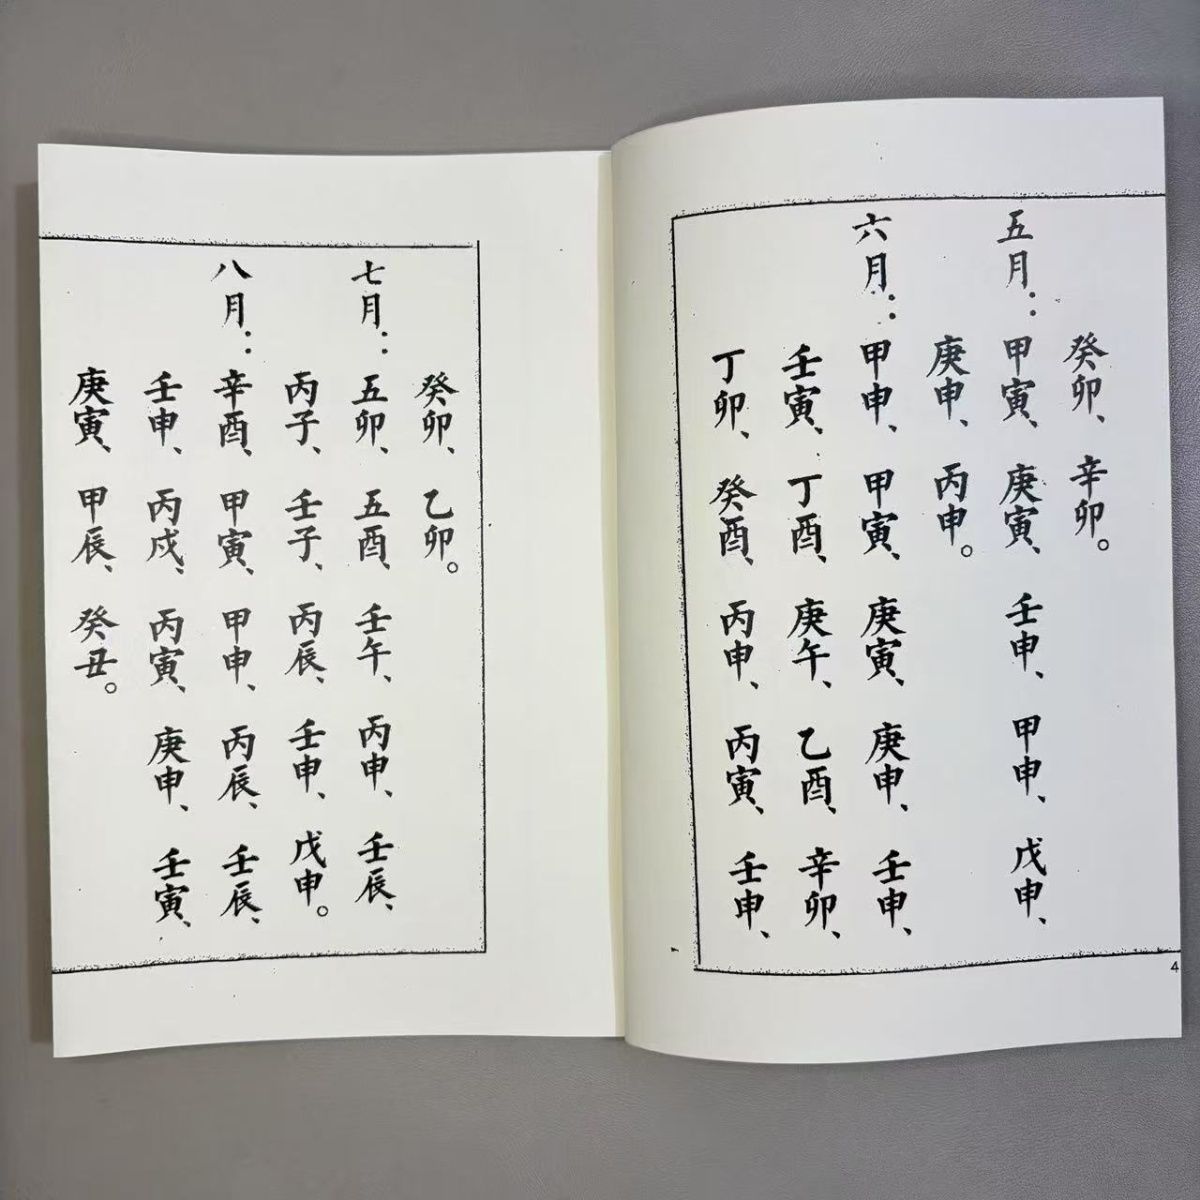 癸卯、辛卯。
五月：甲寅、庚寅、壬申、甲申、戊申、
庚申、丙申。
六月：甲申、甲寅、庚寅、庚申、壬申、
壬寅、丁酉、庚午、乙酉、辛卯、
丁卯、癸酉、丙申、丙寅、壬申、
4
癸卯、乙卯。
七月：五卯、五酉、壬午、丙申、壬辰、
丙子、壬子、丙辰、壬申、戊申。
八月：辛酉、甲寅、甲申、丙辰、壬辰、
壬申、丙戍、丙寅、庚申、壬寅、
庚寅、甲辰、癸丑。